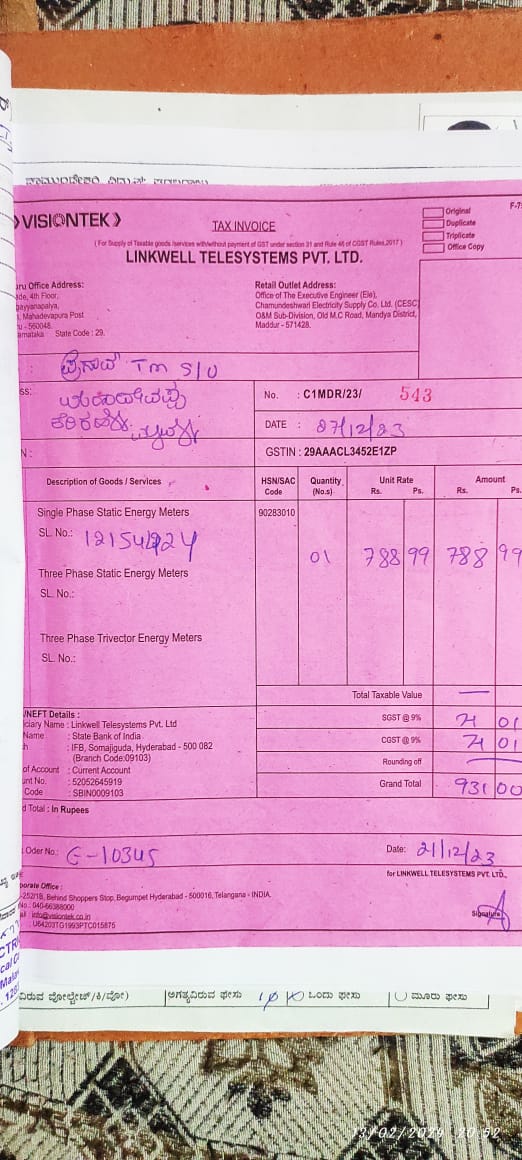 VISIONTEK
TAX INVOICE
( For Supply of Taxable goods /services with/without payment of GST under section 31 and Rule 46 of CGST Rules,2017 )
LINKWELL TELESYSTEMS PVT. LTD.
Original
Duplicate
Triplicate
Office Copy
F-7
Office Address:
4th Floor,
Mahadevapura Post
- 560048.
State Code : 29.
Retail Outlet Address:
Office of The Executive Engineer (Ele),
Chamundeshwari Electricity Supply Co. Ltd. (CESC)
O&M Sub-Division, Old M.C Road, Mandya District,
Maddur - 571428.
TM S/O
No. : C1MDR/23/ 543
DATE : 27/12/23
GSTIN : 29AAACL3452E1ZP
Description of Goods / Services
HSN/SAC Code
Quantity (No.s)
Unit Rate Rs. Ps.
Amount Rs. Ps.
Single Phase Static Energy Meters 90283010
SL. No.:
01 788 99 788 99
Three Phase Static Energy Meters
SL. No.:
Three Phase Trivector Energy Meters
SL. No.:
Total Taxable Value —
SGST @ 9% 71 01
CGST @ 9% 71 01
Rounding off —
Grand Total 931 00
/NEFT Details :
Name : Linkwell Telesystems Pvt. Ltd
Name : State Bank of India
: IFB, Somajiguda, Hyderabad - 500 082
(Branch Code:09103)
of Account : Current Account
No. : 52052645919
Code : SBIN0009103
Total : In Rupees
Oder No.: G-10345
Date: 21/12/23
for LINKWELL TELESYSTEMS PVT. LTD.,
Office :
-252/1B, Behind Shoppers Stop, Begumpet Hyderabad - 500016, Telangana - INDIA.
No.: 040-66388000
: info@visiontek.co.in
: U64203TG1993PTC015875
Signature
ಅಗತ್ಯವಿರುವ ಫೇಸು 1φ ಒಂದು ಫೇಸು ಮೂರು ಫೇಸು
13/02/2024 20:52